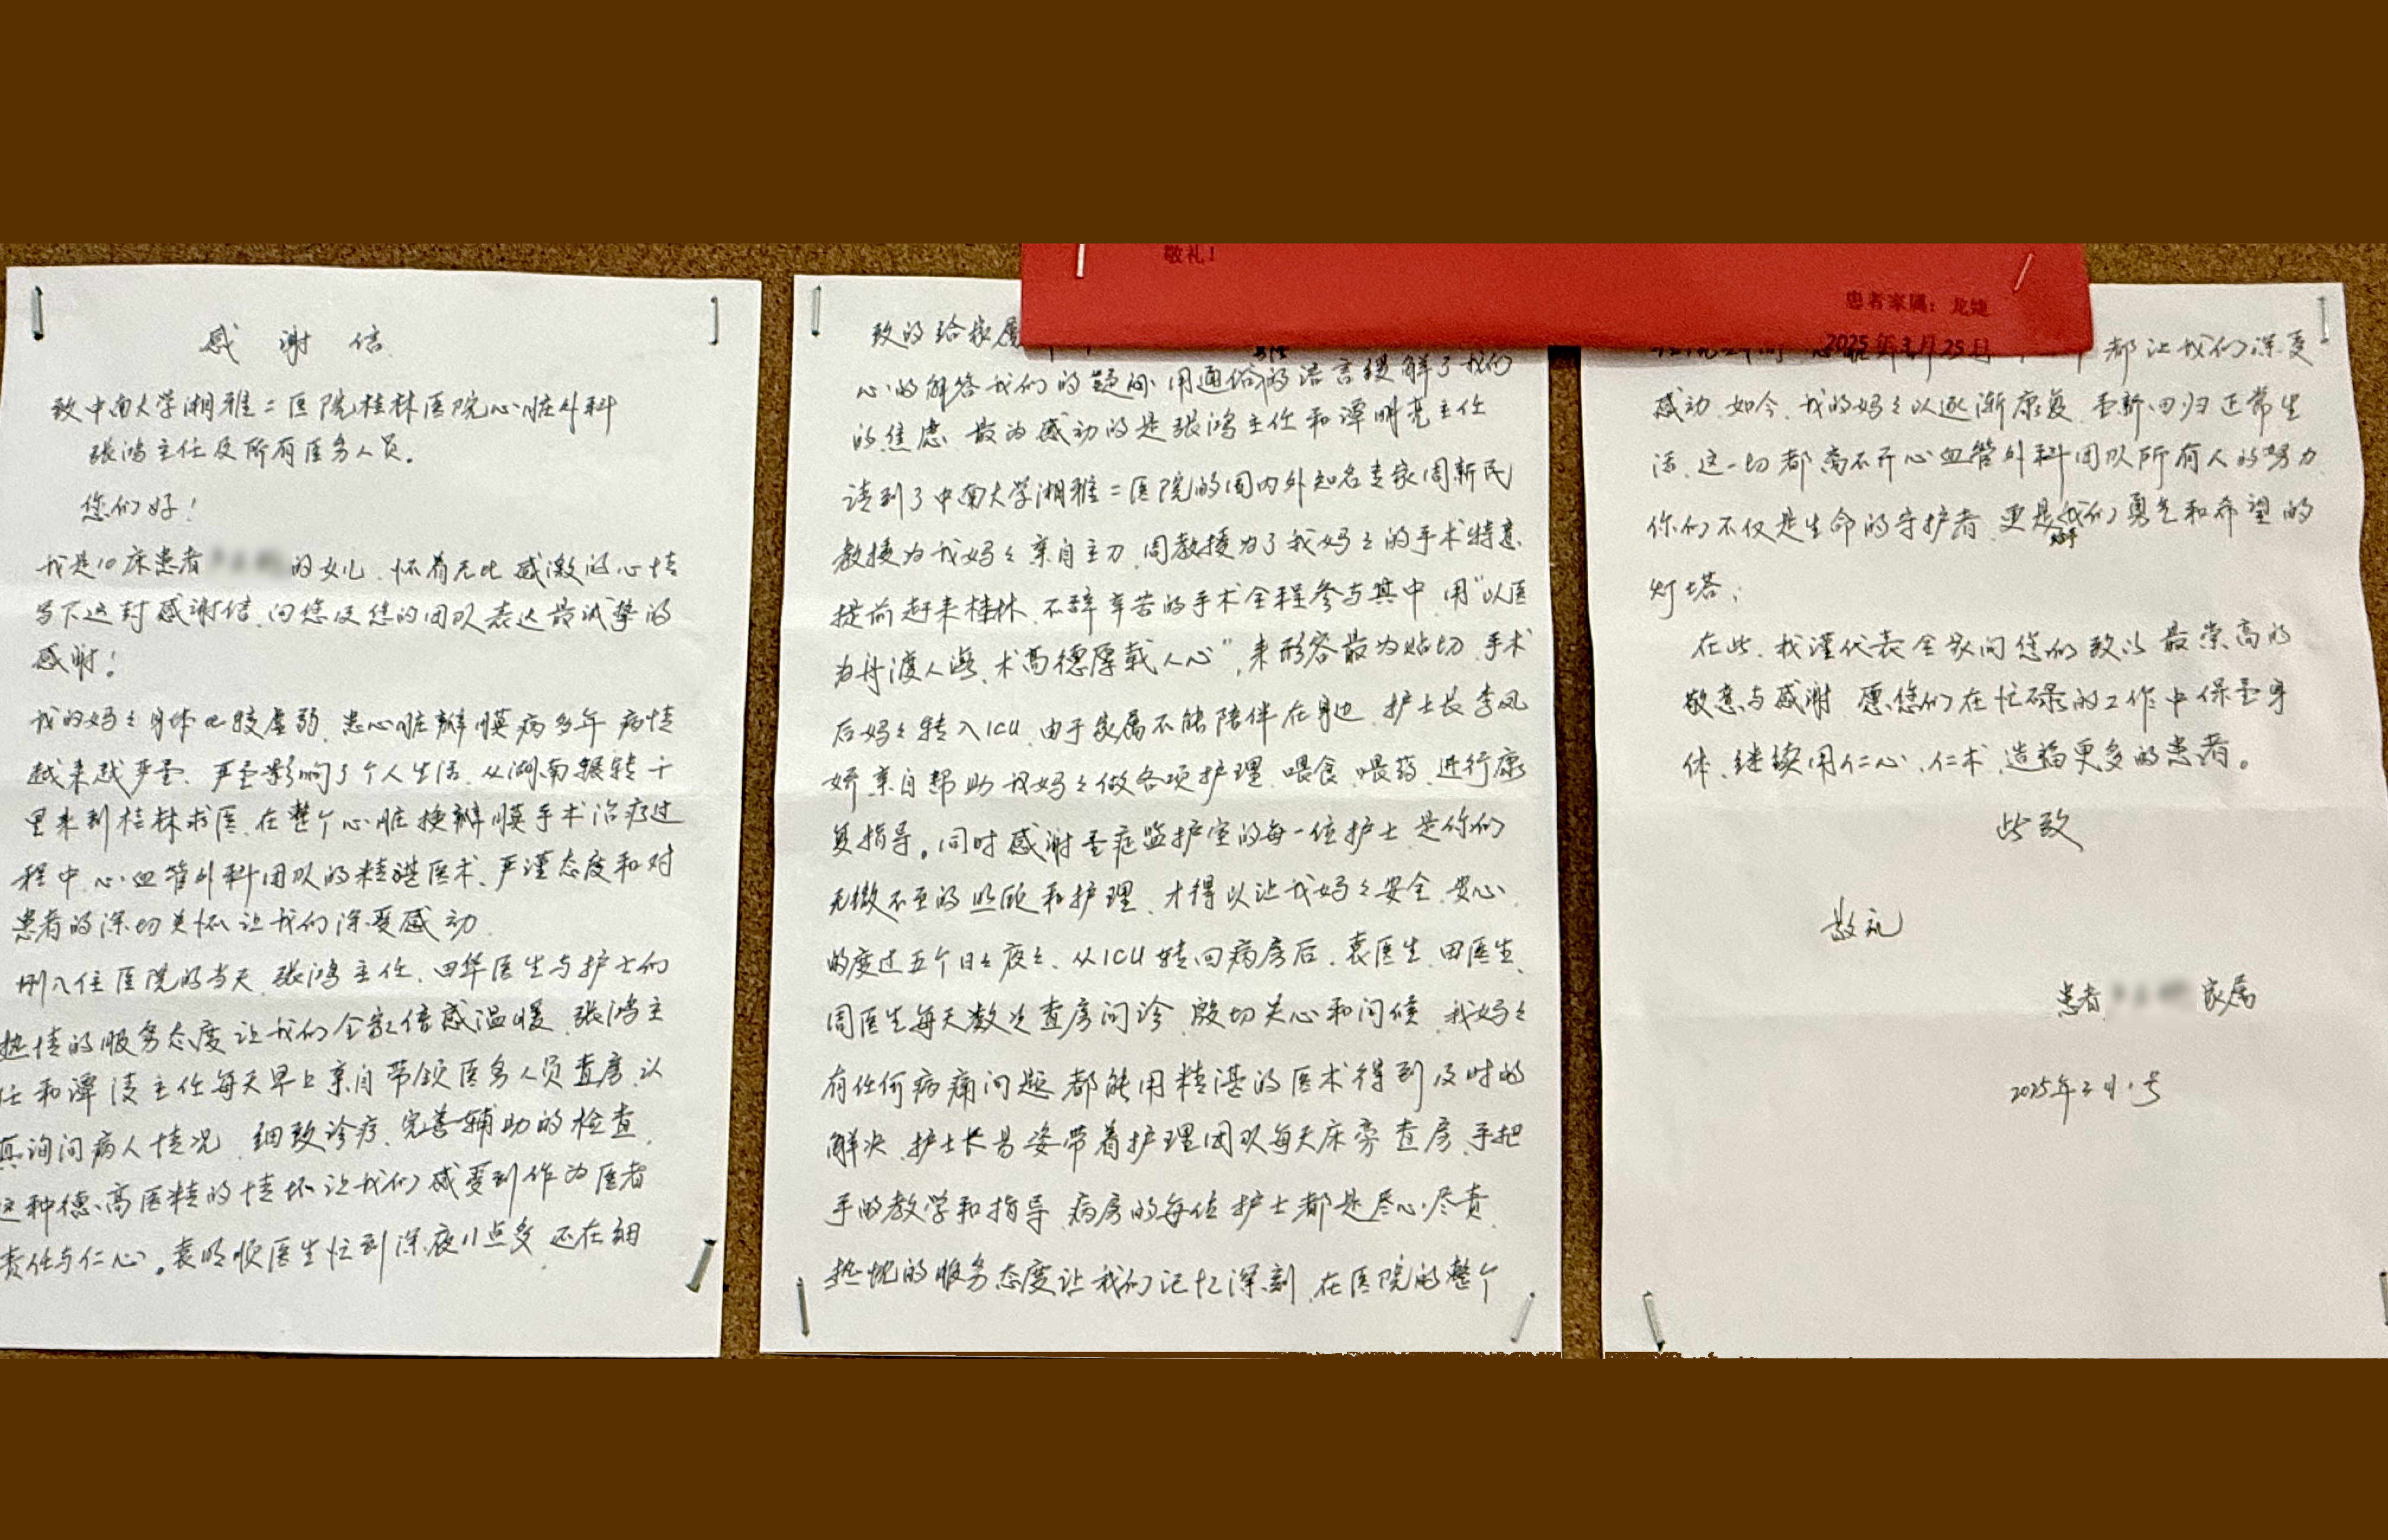 感谢信
致中南大学湘雅二医院桂林医院心脏外科
张鸿主任及所有医务人员。
您们好！
我是10床患者 的女儿、怀着无比感激的心情
写下这封感谢信、向您及您的团队表达最诚挚的
感谢！
我的妈妈身体比较虚弱、患心脏瓣膜病多年 病情
越来越严重、严重影响了个人生活、从湖南辗转千
里来到桂林求医、在整个心脏换瓣膜手术治疗过
程中、心血管外科团队的精湛医术、严谨态度和对
患者的深切关怀让我们深受感动、
刚入住医院的当天、张鸿主任、田华医生与护士们
热情的服务态度让我们全家倍感温暖、张鸿主
任和谭 主任每天早上亲自带领医务人员查房、认
真询问病人情况、细致诊疗、完善辅助的检查、
这种德高医精的情怀让我们感受到作为医者
责任与仁心。袁明顺医生忙到深夜11点多、还在细
致的给家属
心的解答我们的疑问、用通俗的语言缓解了我们
的焦虑、最为感动的是张鸿主任和谭明亮主任
请到了中南大学湘雅二医院的国内外知名专家周新民
教授为我妈妈亲自主刀、周教授为了我妈妈的手术特意
提前赶来桂林、不辞辛苦的手术全程参与其中、用“以医
为舟渡人海、术高德厚载人心”，来形容最为贴切、手术
后妈妈转入ICU、由于家属不能陪伴在身边、护士长李凤
娇亲自帮助我妈妈做各项护理、喂食、喂药、进行康
复指导。同时感谢重症监护室的每一位护士、是你们
无微不至的照顾和护理、才得以让我妈妈安全、安心、
的度过五个日日夜夜、从ICU转回病房后、袁医生、田医生、
周医生每天数次查房问诊、殷切关心和问候、我妈妈
有任何病痛问题都能用精湛的医术得到及时的
解决、护士长易姿带着护理团队每天床旁查房、手把
手的教学和指导、病房的每位护士都是尽心尽责、
热忱的服务态度让我们记忆深刻、在医院的整个
敬礼！
患者家属：龙婕
2025年3月25日
都让我们深受
感动、如今、我的妈妈以逐渐康复、重新回归正常生
活、这一切都离不开心血管外科团队所有人的努力、
你们不仅是生命的守护者、更是我们勇气和希望的
灯塔；
在此、我谨代表全家向您们致以最崇高的
敬意与感谢 愿您们在忙碌的工作中保重身
体、继续用仁心、仁术、造福更多的患者。
此致
敬礼
患者 家属
2025年3月1号